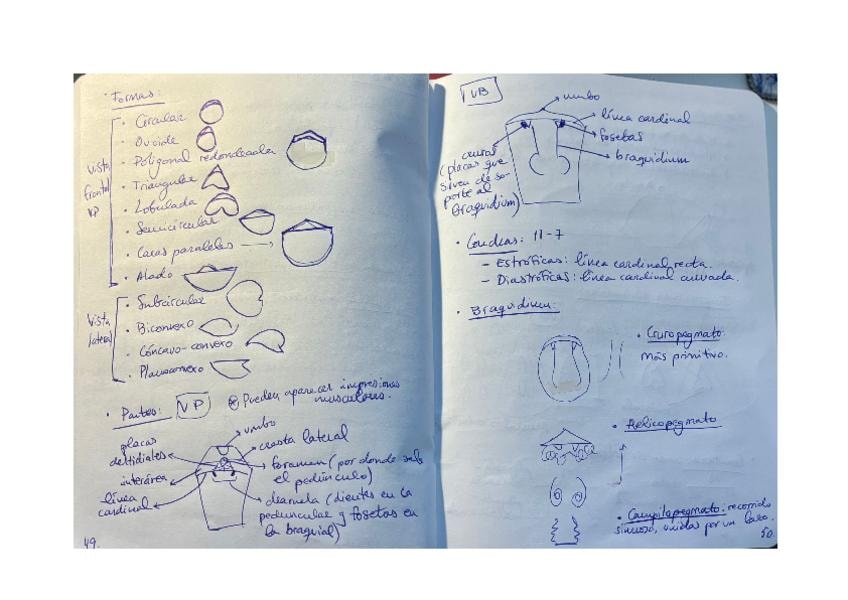 · Formas:
vista frontal VP
· Circular
· Ovoide
· Poligonal redondeada
· Triangular
· Lobulada
· Semicircular
· Caras paralelas →
· Alado
vista lateral
· Subcircular
· Biconvexo
· Cóncavo-convexo
· Planoconvexo
· Partes: VP ⊛ Pueden aparecer impresiones
musculares.
umbo
cresta lateral
placas
deltidiales
foramen (por donde sale
el pedúnculo)
interárea
línea
cardinal
charnela (dientes en la
peduncular y fosetas en
la braquial)
49.
VB
umbo
línea cardinal
fosetas
braquidium
cruras
(placas que
sirven de so-
porte al
braquidium)
· Conchas: 11-7
- Estróficas: línea cardinal recta.
- Diastróficas: línea cardinal curvada.
· Braquidium:
· Cruropegmato:
más primitivo.
· Helicopegmato
· Campilopegmato: recorrido
sinuoso, unidas por un lazo.
50.